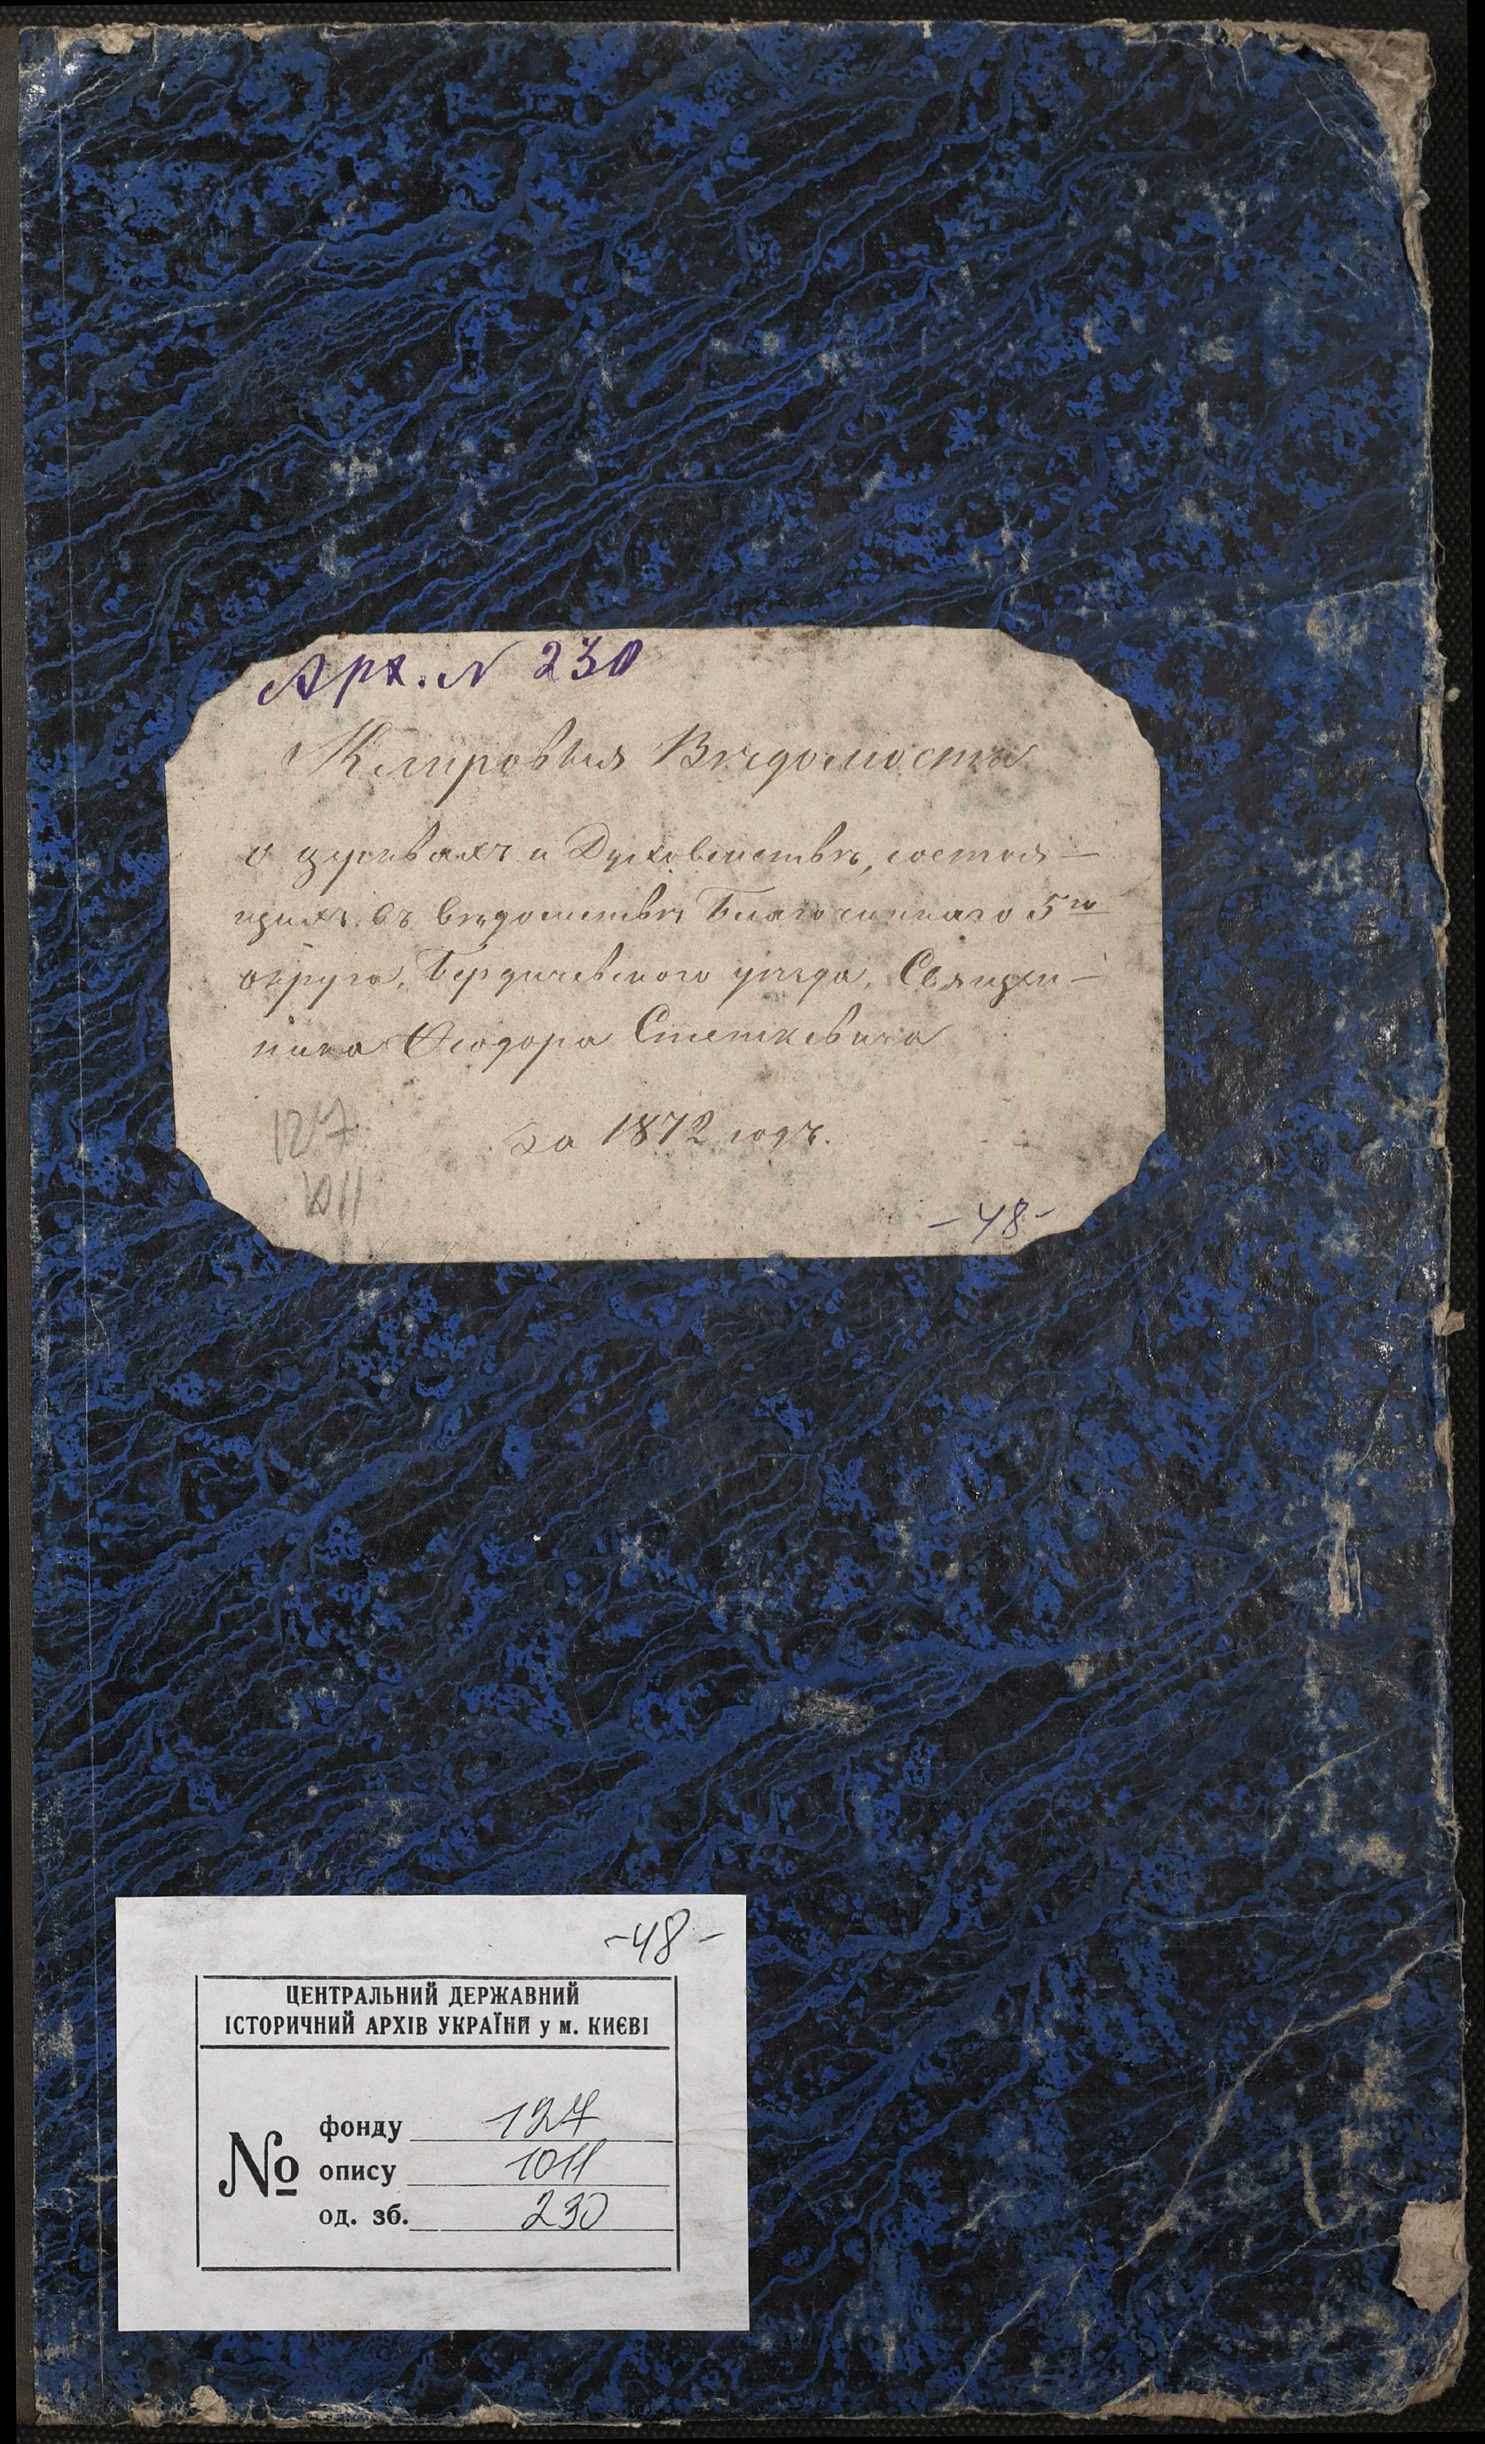 Арх. N 230
Клировыя Вѣдомости
о церквахъ и Духовенствѣ, состоя-
щихъ въ вѣдомствѣ Благочиннаго 5го
округа, Бердичевского уѣзда, Священ-
ника Ѳеодора Стеткевича
за 1872 годъ.
127
1011
-48-
-48-
ЦЕНТРАЛЬНИЙ ДЕРЖАВНИЙ
ІСТОРИЧНИЙ АРХІВ УКРАЇНИ у м. КИЄВІ
№ фонду 127
опису 1011
од. зб. 230